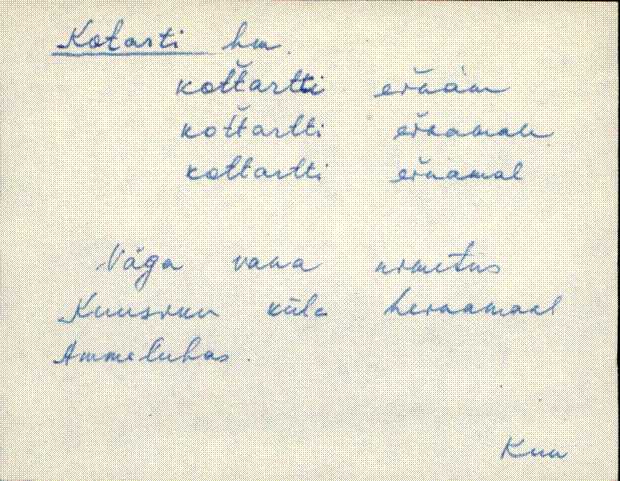 Kotarti hm.
kot̆tartti eĭnām
kot̆tartti eĭnamale
kottartti eĭnamal
Väga vana nimetus
Kuusiku küla heinamaal
Ammeluhas.
Kuu